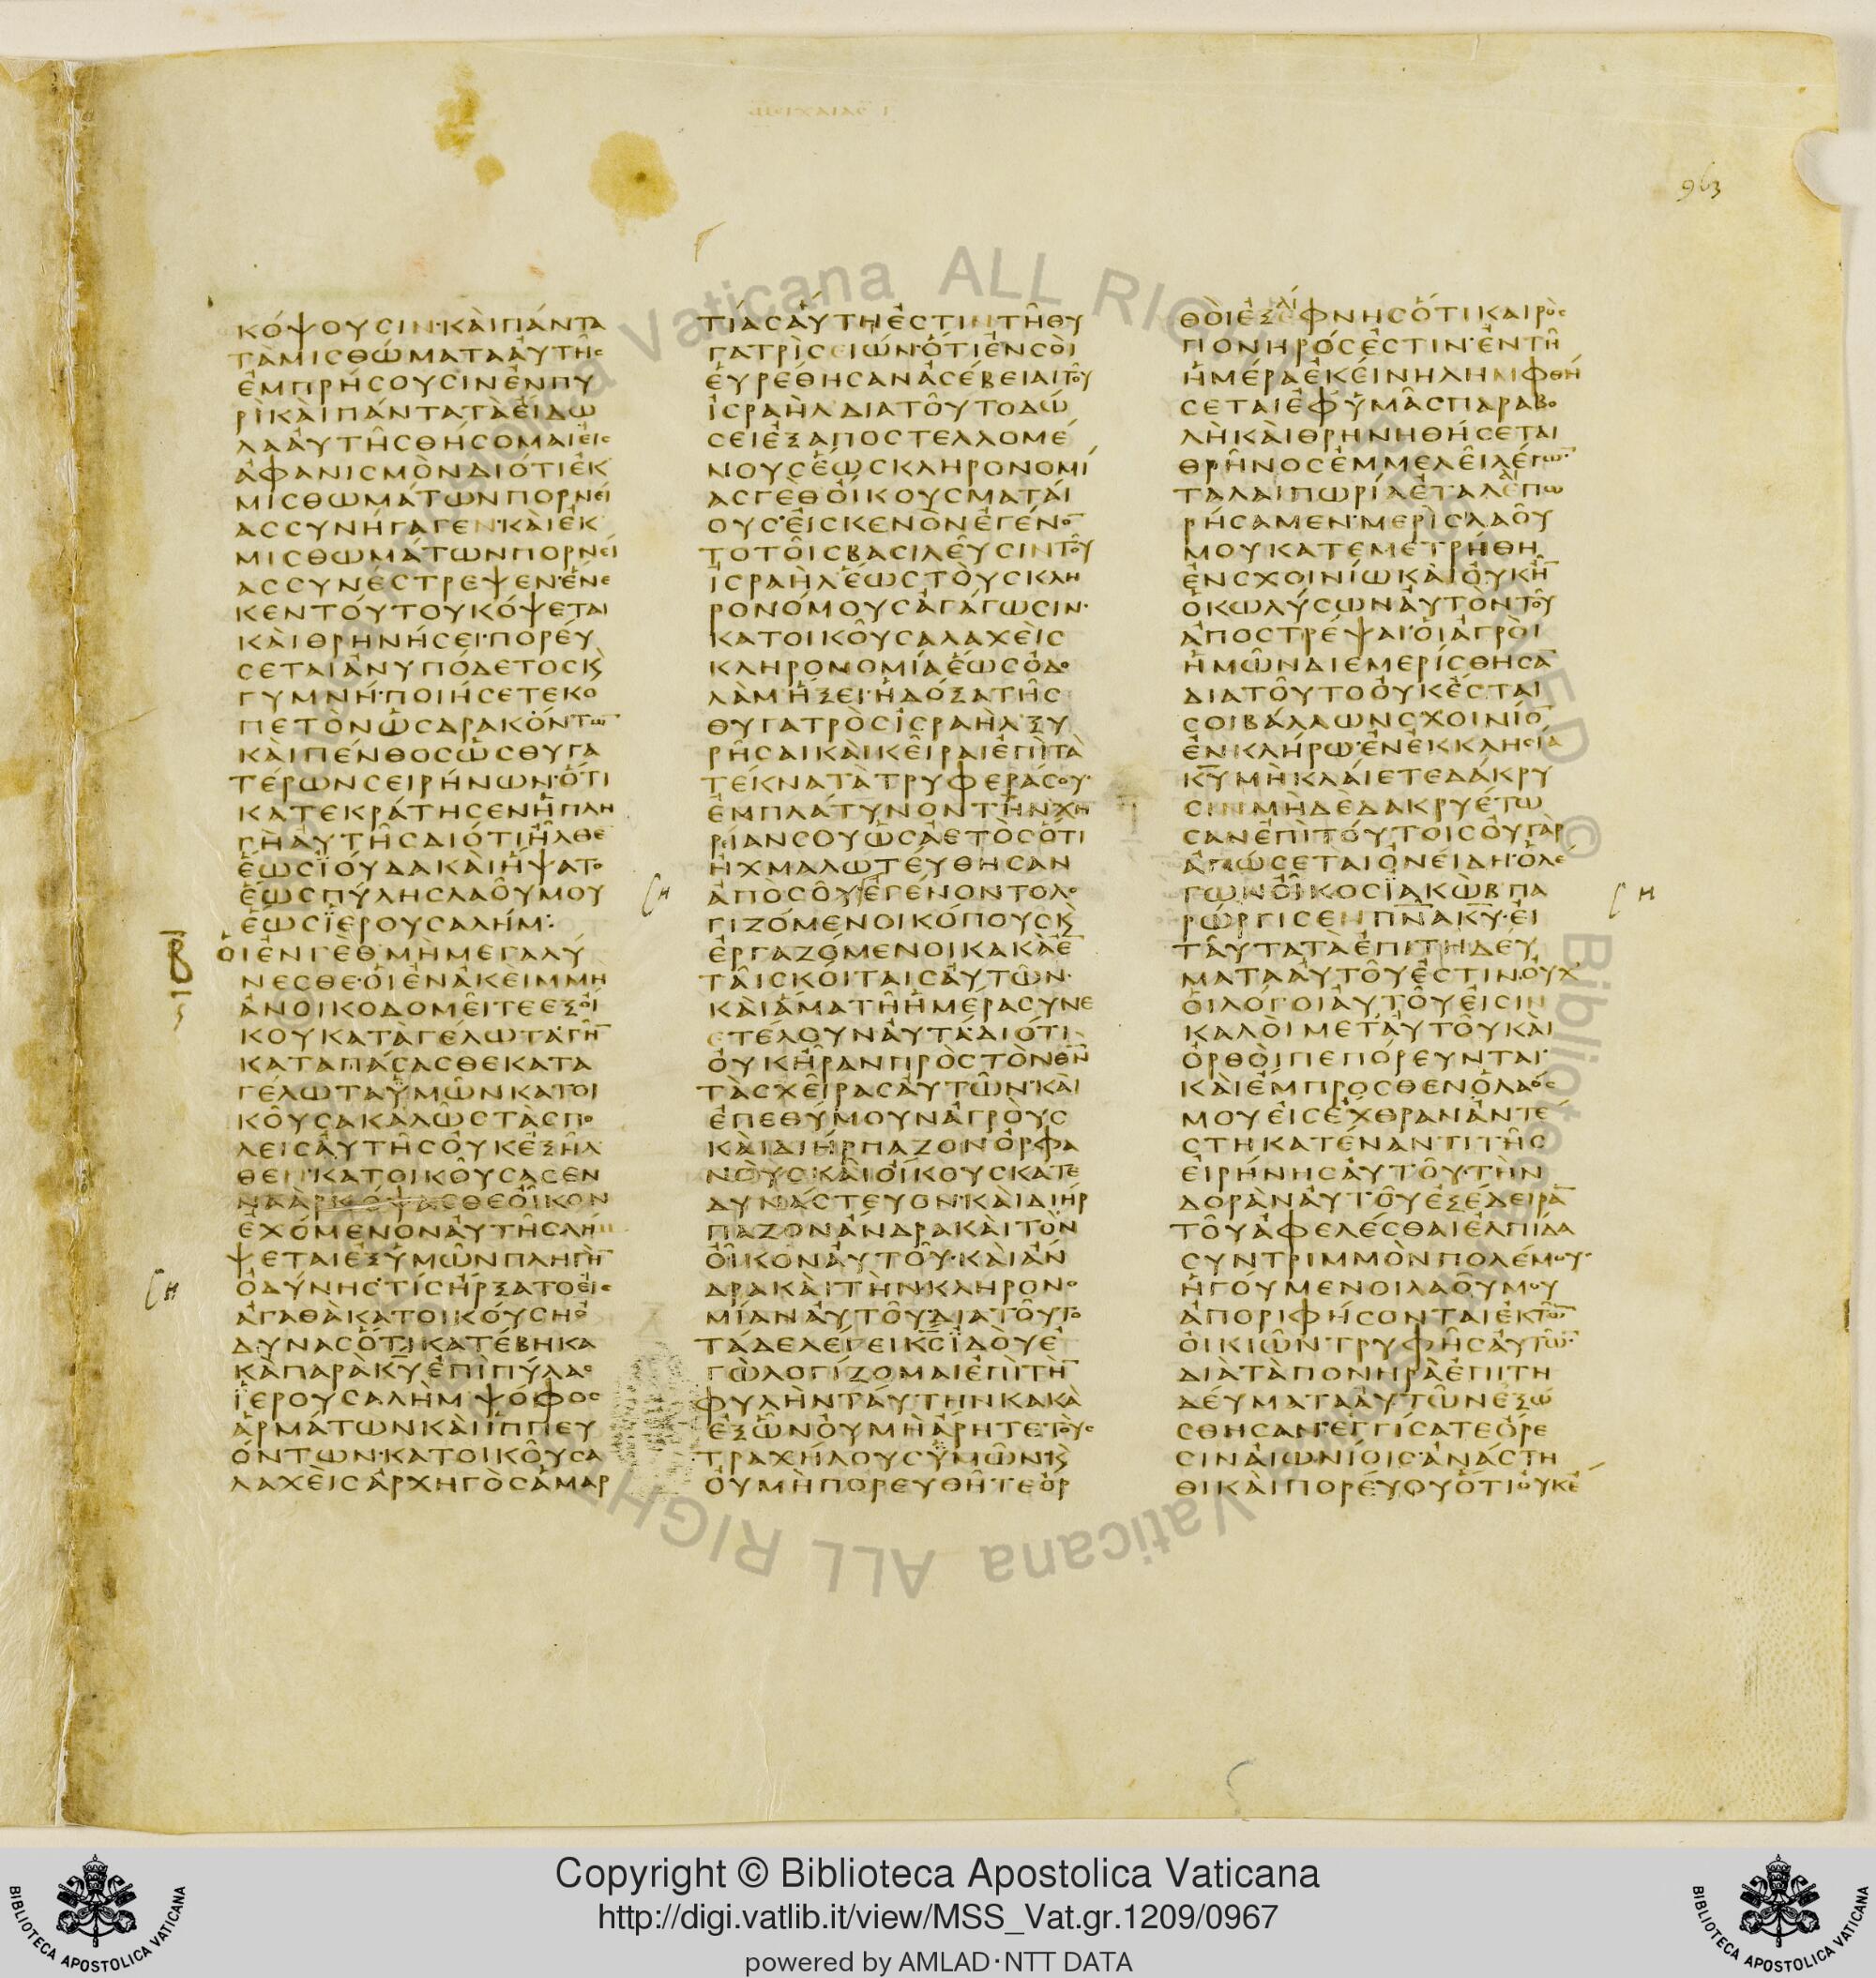 ΙϹ ΜΙΧΑΙΑϹ
963
ΚΌΨΟΥϹΙΝ·ΚΑῚΠΆΝΤΑ
ΤᾺΜΙϹΘΏΜΑΤΑΑὐΤΗ͂Ϲ
ἘΜΠΡΉϹΟΥϹΙΝἘΝΠΥ
ΡῚΚΑῚΠΆΝΤΑΤᾺΕἼΔΩ
ΛΑΑὐΤΗ͂ϹΘΉϹΟΜΑΙΕἸϹ
ἈΦΑΝΙϹΜῸΝΔΙΌΤΙἘΚ
ΜΙϹΘΩΜΆΤΩΝΠΟΡΝΕΊ
ΑϹϹΥΝΉΓΑΓΕΝ·ΚΑῚἘΚ
ΜΙϹΘΩΜΆΤΩΝΠΟΡΝΕΊ
ΑϹϹΥΝΈϹΤΡΕΨΕΝ·ἝΝΕ
ΚΕΝΤΟΎΤΟΥΚΌΨΕΤΑΙ
ΚΑῚΘΡΗΝΉϹΕΙ·ΠΟΡΕΎ
ϹΕΤΑΙἈΝΥΠΌΔΕΤΟϹΚ̀
ΓΥΜΝΉ·ΠΟΙΉϹΕΤΕΚΟ
ΠΕΤῸΝὩϹΔΡΑΚΌΝΤΩ̅
ΚΑῚΠΈΝΘΟϹὩϹΘΥΓΑ
ΤΈΡΩΝϹΕΙΡΉΝΩΝ·ὍΤΙ
ΚΑΤΕΚΡΆΤΗϹΕΝἩΠΛΗ
ΓῊΑὐΤΗ͂ϹΔΙΌΤΙἮΛΘΕ̅
ἝΩϹΪΟΎΔΑΚΑῚἭΨΑΤΟ
ἝΩϹΠΎΛΗϹΛΑΟΥ͂ΜΟΥ
ἝΩϹΪΕΡΟΥϹΑΛΉΜ:
Β
ΟἹἘΝΓῈΘΜῊΜΕΓΑΛΎ
ΝΕϹΘΕ·ΟἹἘΝἈΚΕΙΜΜΗ
ἈΝΟΙΚΟΔΟΜΕΙ͂ΤΕΕΞΟἼ
ΚΟΥΚΑΤᾺΓΈΛΩΤΑ·ΓΗ͂̅
ΚΑΤΑΠΆϹΑϹΘΕΚΑΤΑ
ΓΈΛΩΤΑὙΜΩ͂ΝΚΑΤΟΙ
ΚΟΥ͂ϹΑΚΑΛΩ͂ϹΤᾺϹΠΟ
ΛΕΙϹΑὐΤΗ͂ϹΟὐΚἘΞΗ͂Λ
ΘΕΝ·ΚΑΤΟΙΚΟΥ͂ϹΑϹΕΝ
ΝΑΑΡΚΌΨΑϹΘΕΟἾΚΟΝ
ἘΧΌΜΕΝΟΝΑὐΤΗ͂ϹΛΉΜ
ΨΕΤΑΙἘΞὙΜΩ͂ΝΠΛΗΓῊ̅
ὈΔΎΝΗϹ·ΤΊϹἬΡΞΑΤΟΕἸϹ
ἈΓΑΘᾺΚΑΤΟΙΚΟΎϹΗΟ
ΔΥΝΑϹὍΤΙΚΑΤΈΒΗΚΑ
ΚᾺΠΑΡᾺΚ̅Υ̅ἘΠῚΠΎΛΑϹ
ΪΕΡΟΥϹΑΛῊΜΨΌΦΟϹ
ἉΡΜΆΤΩΝΚΑῚἹΠΠΕΥ
ΌΝΤΩΝ·ΚΑΤΟΙΚΟΥ͂ϹΑ
ΛΑΧΕῚϹἈΡΧΗΓῸϹἉΜΑΡ
ΤΊΑϹΑὐΤΉἘϹΤΙΝΤΗ͂ΘΥ
ΓΑΤΡῚϹΕΙΏΝ·ὍΤΙἘΝϹΟῚ
ΕὙΡΈΘΗϹΑΝἈϹΈΒΕΙΑΙΤΟΥ͂
ἸϹΡΑῊΛΔΙΑΤΟΥ͂ΤΟΔΏ
ϹΕΙἘΞΑΠΟϹΤΕΛΛΟΜΈ
ΝΟΥϹἝΩϹΚΛΗΡΟΝΟΜΊ
ΑϹΓῈΘΟἼΚΟΥϹΜΑΤΑΊ
ΟΥϹ·ΕἸϹΚΕΝῸΝἘΓΈΝΟ̅
ΤΟΤΟΙ͂ϹΒΑϹΙΛΕΥ͂ϹΙΝΤΟΥ͂
ἸϹΡΑῊΛἝΩϹΤΟῪϹΚΛΗ
ΡΟΝΌΜΟΥϹἈΓΆΓΩϹΙΝ·
ΚΑΤΟΙΚΟΥ͂ϹΑΛΑΧΕῚϹ
ΚΛΗΡΟΝΟΜΊΑἝΩϹὈΔΟ
ΛᾺΜἭΞΕΙ·ἩΔΌΞΑΤΗ͂Ϲ
ΘΥΓΑΤΡῸϹἸϹΡΑῊΛ·ΞΥ
ΡΗϹΑΙΚΑῚΚΕΙ͂ΡΑΙἘΠῚΤᾺ
ΤΈΚΝΑΤᾺΤΡΥΦΕΡΆϹΟΥ·
ἘΜΠΛΆΤΥΝΟΝΤῊΝΧΗ
ΡΕΊΑΝϹΟΥὩϹἈΕΤῸϹὍΤΙ
ἨΧΜΑΛΩΤΕΎΘΗϹΑΝ
ἈΠῸϹΟΥ͂ἘΓΈΝΟΝΤΟΛΟ
ΓΙΖΌΜΕΝΟΙΚΌΠΟΥϹΚ̀
ἘΡΓΑΖΌΜΕΝΟΙΚΑΚᾺἘ̅
ΤΑΙ͂ϹΚΟΊΤΑΙϹΑὐΤΩ͂Ν·
ΚΑῚἍΜΑΤΗ͂ἩΜΈΡΑϹΥΝΕ
ϹΤΈΛΟΥΝΑὐΤΆ·ΔΙΌΤΙ
ΟὐΚΗ͂ΡΑΝΠΡῸϹΤῸΝΘ̅Ν̅
ΤᾺϹΧΕΙ͂ΡΑϹΑὐΤΩ͂Ν·ΚΑῚ
ἘΠΕΘΎΜΟΥΝἈΓΡΟῪϹ
ΚΑῚΔΙΉΡΠΑΖΟΝὈΡΦΑ
ΝΟῪϹ·ΚΑῚΟἼΚΟΥϹΚΑΤΕ
ΔΥΝΆϹΤΕΥΟΝ·ΚΑῚΔΙΉΡ
ΠΑΖΟΝἌΝΔΡΑΚΑῚΤῸΝ
ΟἾΚΟΝΑὐΤΟΥ͂·ΚΑῚἌΝ
ΔΡΑΚΑῚΤῊΝΚΛΗΡΟΝΟ
ΜΊΑΝΑὐΤΟΥ͂·ΔΙΑΤΟΥ͂ΤΟ
ΤΆΔΕΛΈΓΕΙΚ̅Ϲ̅ΪΔΟῪἘ
ΓῺΛΟΓΊΖΟΜΑΙἘΠῚΤῊ̅
ΦΥΛῊΝΤΑΎΤΗΝΚΑΚᾺ
ἘΞὯΝΟὐΜῊἌΡΗΤΕΤΟῪϹ
ΤΡΑΧΉΛΟΥϹὙΜΩ͂ΝΚ̀
ΟὐΜῊΠΟΡΕΥΘΗ͂ΤΕὈΡ
ΘΟῚἘΞΑΊΦΝΗϹὍΤΙΚΑΙΡῸϹ
ΠΟΝΗΡΌϹἘϹΤΙΝ·ἘΝΤΗ͂
ἩΜΈΡΑἘΚΕΊΝΗΛΗΜΦΘΉ
ϹΕΤΑΙἘΦὙΜΑ͂ϹΠΑΡΑΒΟ
ΛῊΚΑῚΘΡΗΝΗΘΉϹΕΤΑΙ
ΘΡΗ͂ΝΟϹἘΜΜΕΛΕΙ͂ΛΈΓΩ̅·
ΤΑΛΑΙΠΩΡΊΑἘΤΑΛΑΙΠΩ
ΡΉϹΑΜΕΝ·ΜΕΡῚϹΛΑΟΥ͂
ΜΟΥΚΑΤΕΜΕΤΡΉΘΗ
ἘΝϹΧΟΙΝΊΩΚΑῚΟὐΚΗ͂̅
ὉΚΩΛΎϹΩΝΑὐΤῸΝΤΟΥ͂
ἈΠΟϹΤΡΈΨΑΙ·ΟἹἈΓΡΟῚ
ἩΜΩ͂ΝΔΙΕΜΕΡΊϹΘΗϹΑ̅
ΔΙΑΤΟΥ͂ΤΟΟὐΚἜϹΤΑΙ
ϹΟΙΒΆΛΛΩΝϹΧΟΙΝΊΟ̅
ἘΝΚΛΉΡΩ·ἘΝἘΚΚΛΗϹΊΑ
Κ̅Υ̅ΜῊΚΛΑΊΕΤΕΔΆΚΡΥ
ϹΙΝΜΗΔῈΔΑΚΡΥΈΤΩ
ϹΑΝἘΠῚΤΟΎΤΟΙϹΟὐΓᾺΡ
ἈΠΏϹΕΤΑΙὈΝΕΊΔΗ·ὉΛΈ
ΓΩΝΟἾΚΟϹΪΑΚῺΒΠΑ
ΡΏΡΓΙϹΕΝΠ̅Ν̅Α̅Κ̅Υ̅·ΕἸ
ΤΑΥ͂ΤΑΤᾺἘΠΙΤΗΔΕΎ
ΜΑΤΑΑὐΤΟΥ͂ἘϹΤΙΝ·ΟὐΧ
ΟἹΛΌΓΟΙΑὐΤΟΥ͂ΕἸϹΙΝ
ΚΑΛΟῚΜΕΤΑὐΤΟΥ͂ΚΑῚ
ὈΡΘΟῚΠΕΠΌΡΕΥΝΤΑΙ·
ΚΑῚἜΜΠΡΟϹΘΕΝὉΛΑΌϹ
ΜΟΥΕἸϹἜΧΘΡΑΝἈΝΤΈ
ϹΤΗΚΑΤΈΝΑΝΤΙΤΗ͂Ϲ
ΕἸΡΉΝΗϹΑὐΤΟΥ͂·ΤῊΝ
ΔΟΡᾺΝΑὐΤΟΥ͂ἘΞΈΔΕΙΡΑ̅
ΤΟΥ͂ἈΦΕΛΈϹΘΑΙἘΛΠΊΔΑ
ϹΥΝΤΡΙΜΜῸΝΠΟΛΈΜΟΥ·
ἩΓΟΎΜΕΝΟΙΛΑΟΥ͂ΜΟΥ
ἈΠΟΡΙΦΉϹΟΝΤΑΙἘΚΤΩ͂̅
ΟἸΚΙΩ͂ΝΤΡΥΦΗ͂ϹΑὐΤΩ͂̅·
ΔΙᾺΤᾺΠΟΝΗΡᾺἘΠΙΤΗ
ΔΕΎΜΑΤΑΑὐΤΩ͂ΝἘΞΏ
ϹΘΗϹΑΝ·ἘΓΓΊϹΑΤΕὌΡΕ
ϹΙΝΑἸΩΝΊΟΙϹ·ἈΝΆϹΤΗ
ΘΙΚΑῚΠΟΡΕΎΟΥὍΤΙΟὐΚἜ
Vaticana ALL RIGHTS RESERVED © Biblioteca Vaticana ALL RIGHT
Copyright © Biblioteca Apostolica Vaticana
http://digi.vatlib.it/view/MSS_Vat.gr.1209/0967
powered by AMLAD·NTT DATA
BIBLIOTECA APOSTOLICA VATICANA
BIBLIOTECA APOSTOLICA VATICANA